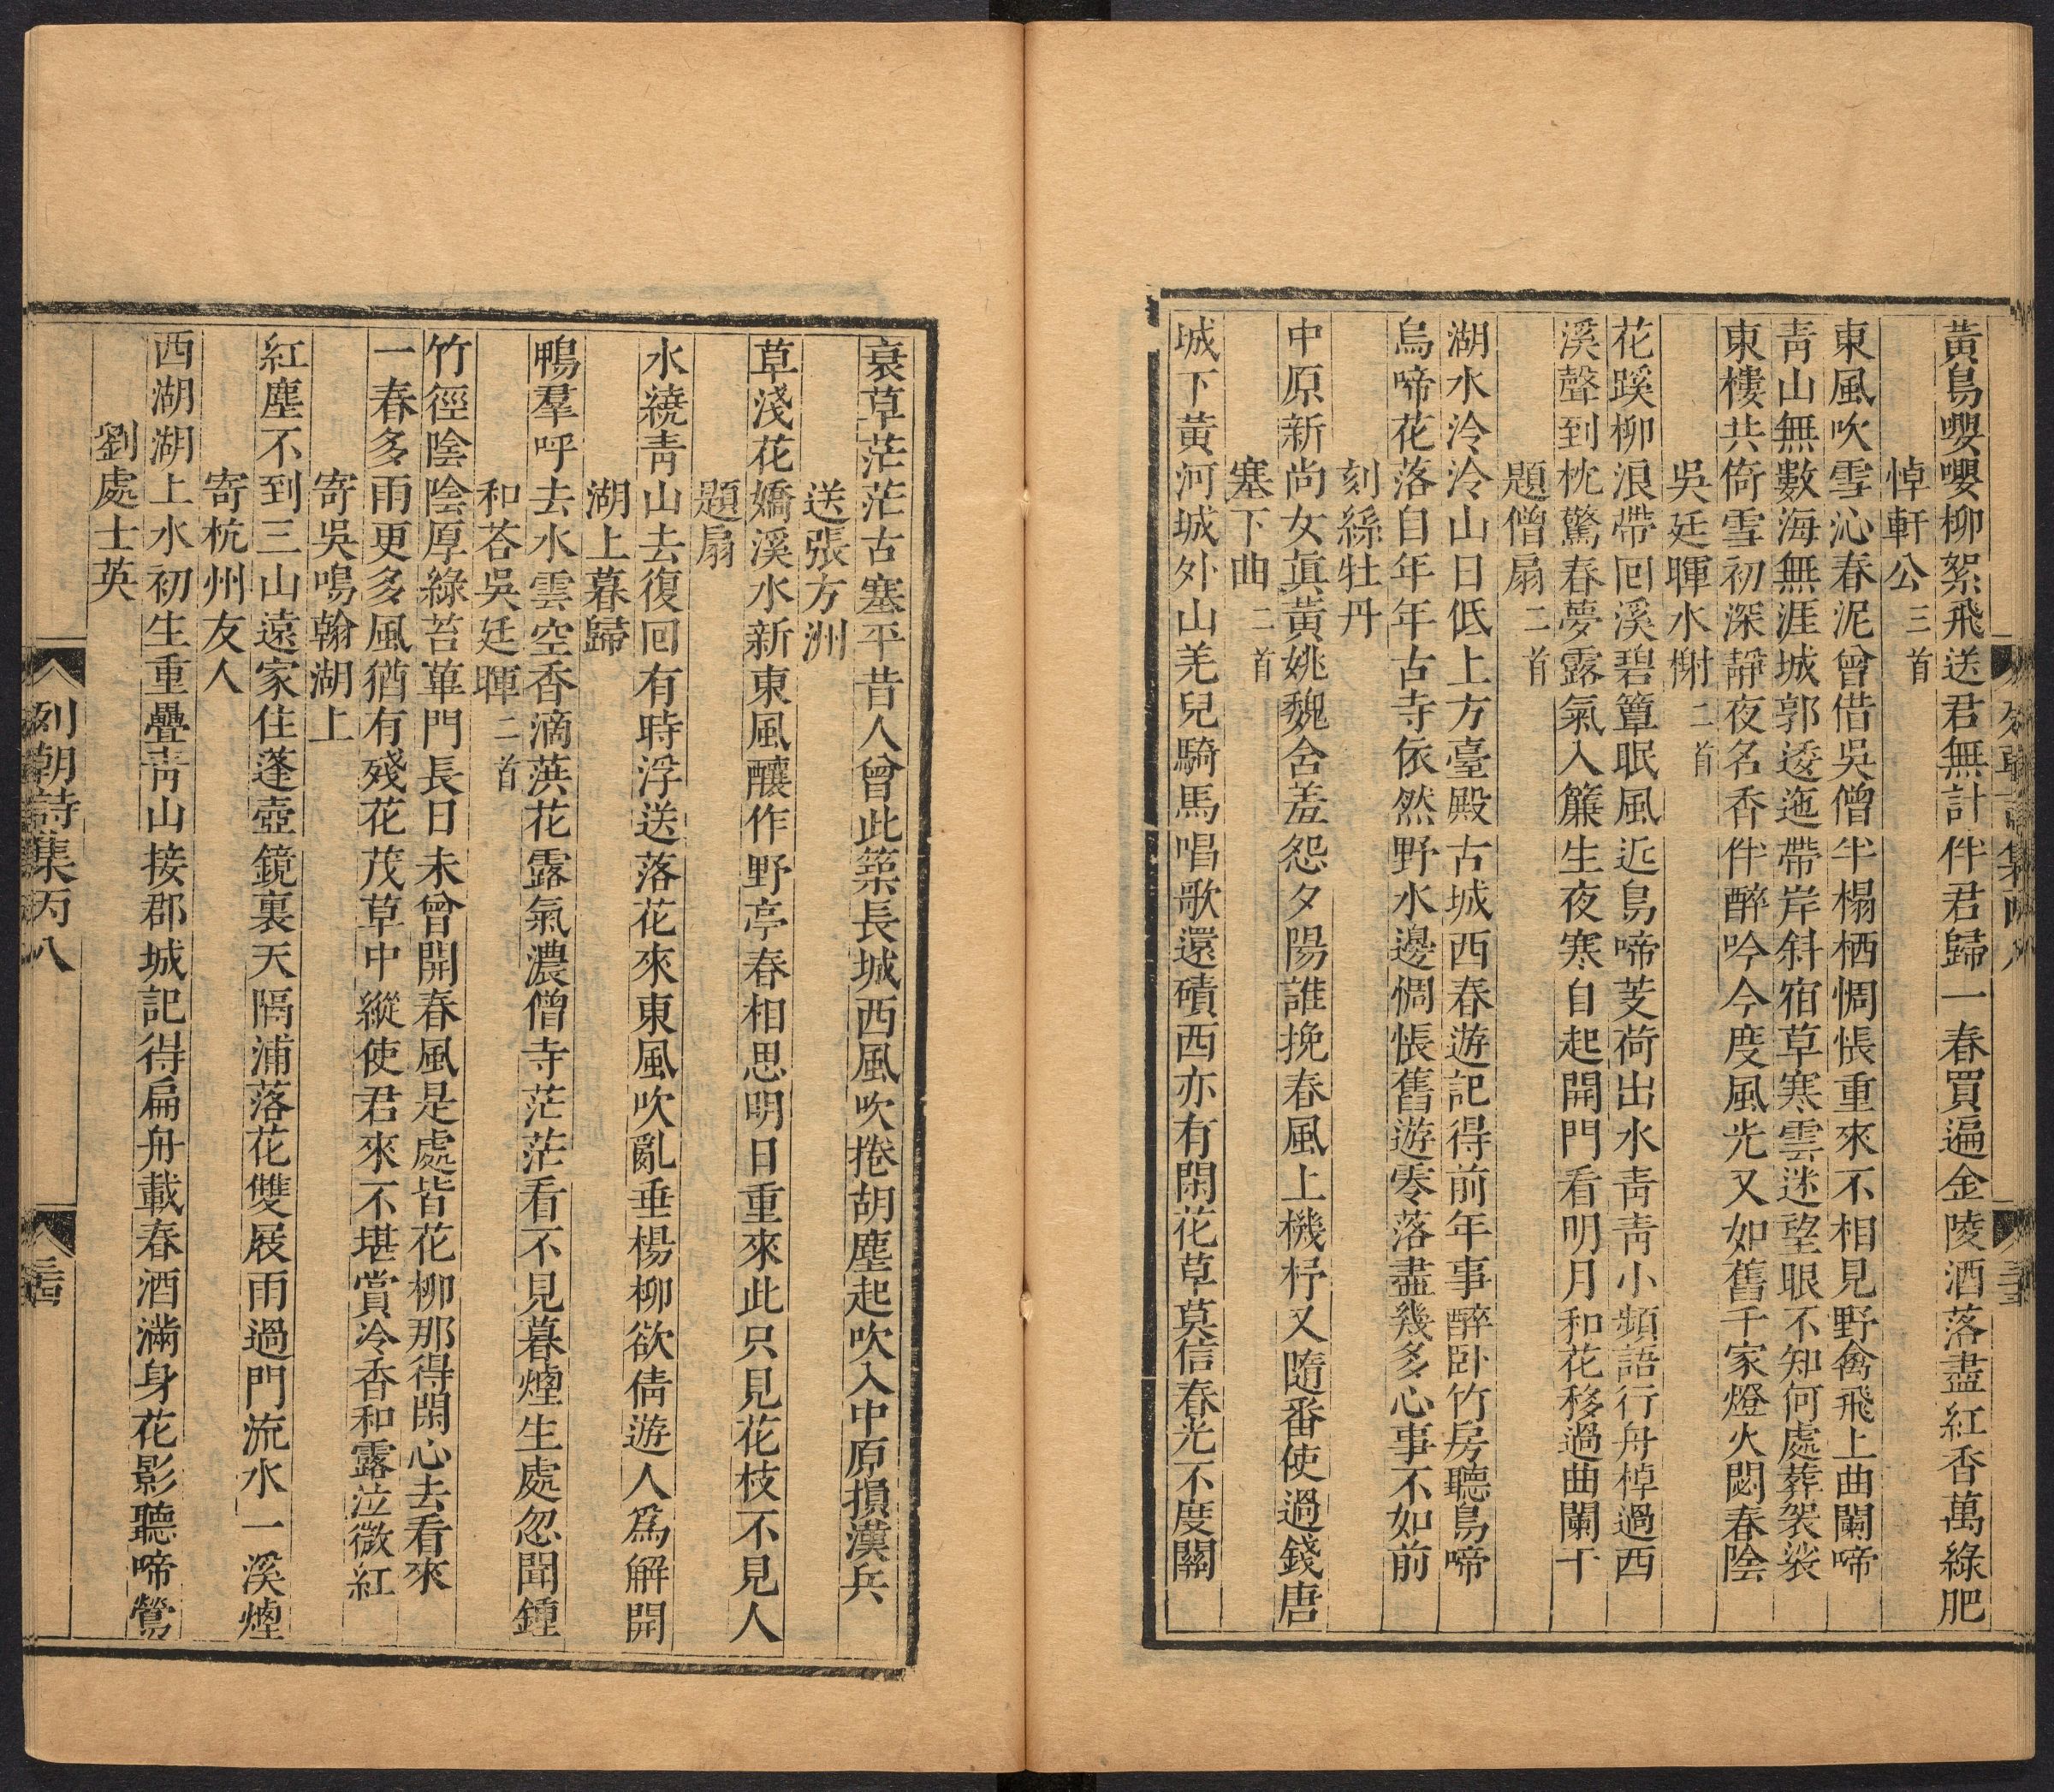 黃鳥嚶嚶柳絮飛送君無計伴君歸一春買遍金陵酒落盡紅香萬綠肥
悼軒公三首
東風吹雪沁春泥曾借吳僧半榻栖惆悵重來不相見野禽飛上曲闌啼
靑山無數海無涯城郭逶迤帶岸斜宿草寒雲迷望眼不知何處葬袈裟
東樓共倚雪初深靜夜名香伴醉吟今度風光又如舊千家燈火閟春陰
吳廷暉水榭二首
花蹊柳浪帶回溪碧簟眠風近鳥啼芰荷出水靑靑小頻語行舟棹過西
溪聲到枕驚春夢露氣入簾生夜寒自起開門看明月和花移過曲闌干
題僧扇二首
湖水泠泠山日低上方臺殿古城西春遊記得前年事醉臥竹房聽鳥啼
烏啼花落自年年古寺依然野水邊惆悵舊遊零落盡幾多心事不如前
刻絲牡丹
中原新尚女眞黃姚魏含羞怨夕陽誰挽春風上機杼又隨番使過錢唐
塞下曲二首
城下黃河城外山羌兒騎馬唱歌還磧西亦有閑花草莫信春光不度關
衰草茫茫古塞平昔人曾此築長城西風吹捲胡塵起吹入中原損漢兵
送張方洲
草淺花嬌溪水新東風釀作野亭春相思明日重來此只見花枝不見人
題扇
水繞靑山去復回有時浮送落花來東風吹亂垂楊柳欲倩遊人爲解開
湖上暮歸
鴨羣呼去水雲空香滴葓花露氣濃僧寺茫茫看不見暮煙生處忽聞鍾
和荅吳廷暉二首
竹徑陰陰厚綠苔蓽門長日未曾開春風是處皆花柳那得閑心去看來
一春多雨更多風猶有殘花茂草中縱使君來不堪賞冷香和露泣微紅
寄吳鳴翰湖上
紅塵不到三山遠家住蓬壺鏡裏天隔浦落花雙屐雨過門流水一溪煙
寄杭州友人
西湖湖上水初生重疊靑山接郡城記得扁舟載春酒滿身花影聽啼鶯
劉處士英
列朝詩集丙八
三百